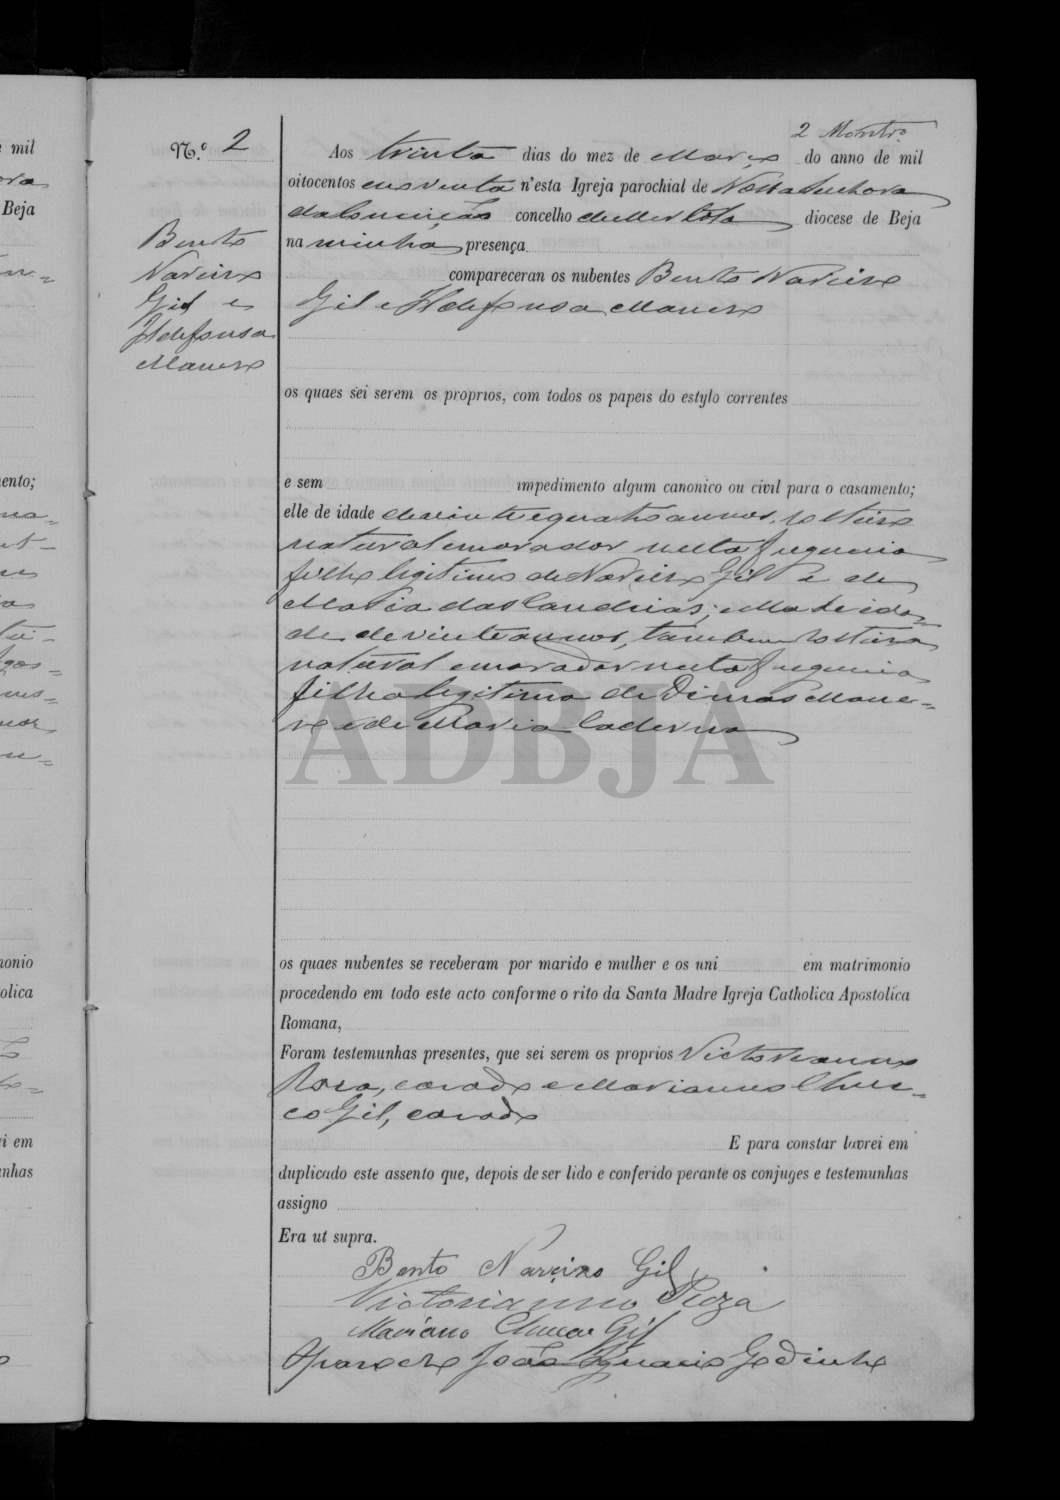 2 Montr.o
N.º 2
Aos trinta dias do mez de Março do anno de mil
oitocentos e noventa n'esta Igreja parochial de Nossa Senhora
da Conceição concelho de Mertola diocese de Beja
na minha presença
compareceran os nubentes Bento Nareizo
Gil e Ildefonsa
Bento
Nareizo
Gil e
Ildefonsa
os quaes sei serem os proprios, com todos os papeis do estylo correntes
e sem impedimento algum canonico ou civil para o casamento;
elle de idade de vinte e quatro annos, solteiro
natural e morador nesta freguezia
filho legitimo de Gil e de
Maria das Candeias; e ella de ida-
de de vinte annos, tambem solteira
natural e morador nesta freguezia
filha legitima de Dimas
e de Maria
ADBJA
os quaes nubentes se receberam por marido e mulher e os uni em matrimonio
procedendo em todo este acto conforme o rito da Santa Madre Igreja Catholica Apostolica
Romana,
Foram testemunhas presentes, que sei serem os proprios Victorianno
Roza, casado e Marianno
co Gil, casado
E para constar lavrei em
duplicado este assento que, depois de ser lido e conferido perante os conjuges e testemunhas
assigno
Era ut supra.
Bento Nareizo Gil
Victorianno Roza
Mariano Gil
O parocho João Ignacio Godinho